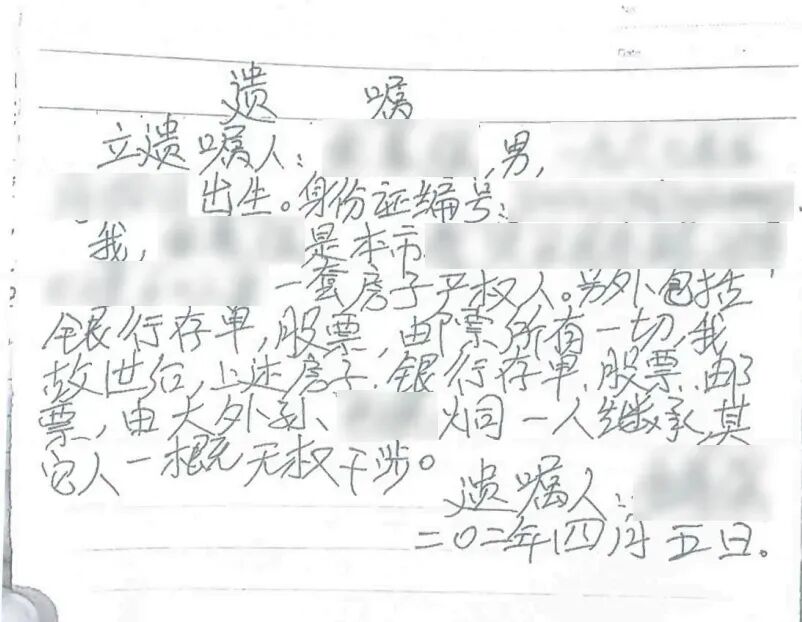 No.
Date
遗 嘱
立遗嘱人：,男,
出生。身份证编号：
我,是本市
一套房子产权人。另外包括
银行存单,股票,邮票所有一切,我
故世后,上述房子.银行存单.股票.邮
票,由大外孙、炯一人继承,其
它人一概无权干涉。
遗嘱人：
二〇二年四月五日。